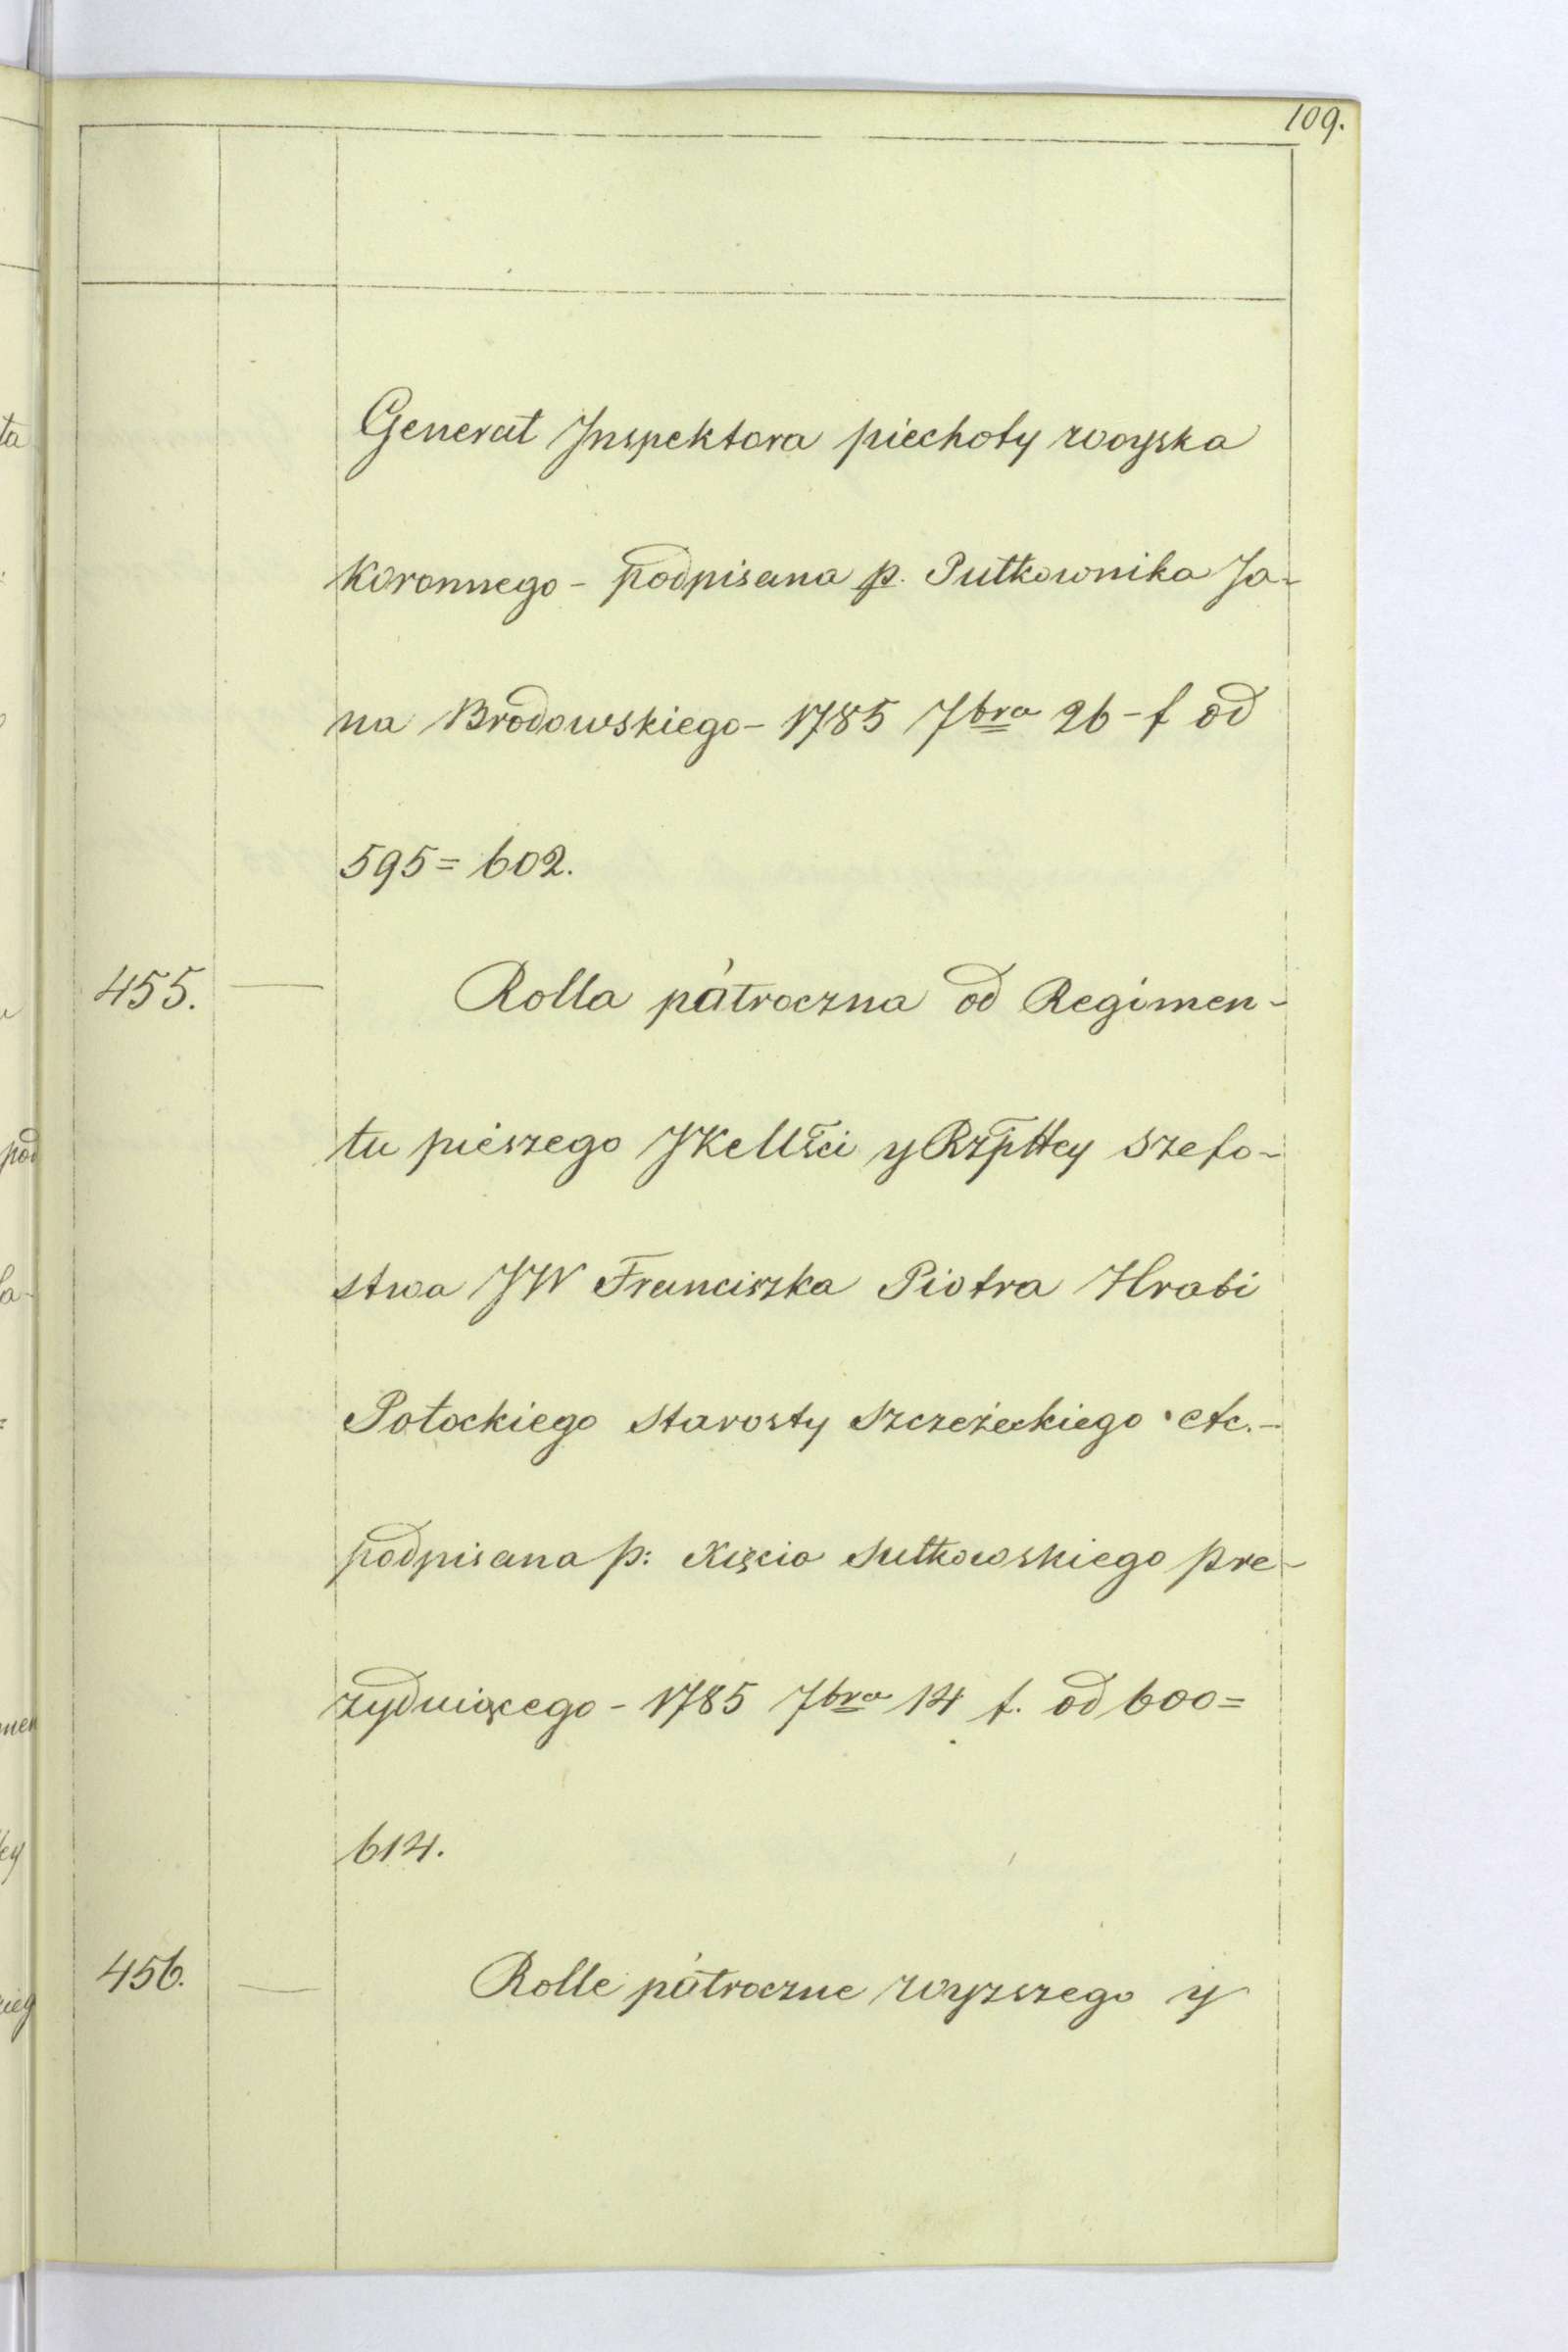 109.
Generał Jnspektora piechoty woyska
Koronnego - podpisana p. Pułkownika Ja-
na Brodowskiego - 1785 7bra 26 - f od
595 = 602.
455. — Rolla półroczna od Regimen-
tu pieszego JKeMści y Rzpltey Szefo-
stwa JW Franciszka Piotra Hrabi
Potockiego Starosty Szczeżeckiego etc. -
podpisana p: Xięcia Sułkowskiego pre-
zyduiącego - 1785 7bra 14 f. od 600 =
614.
456. — Rolle półroczne wyzszego y